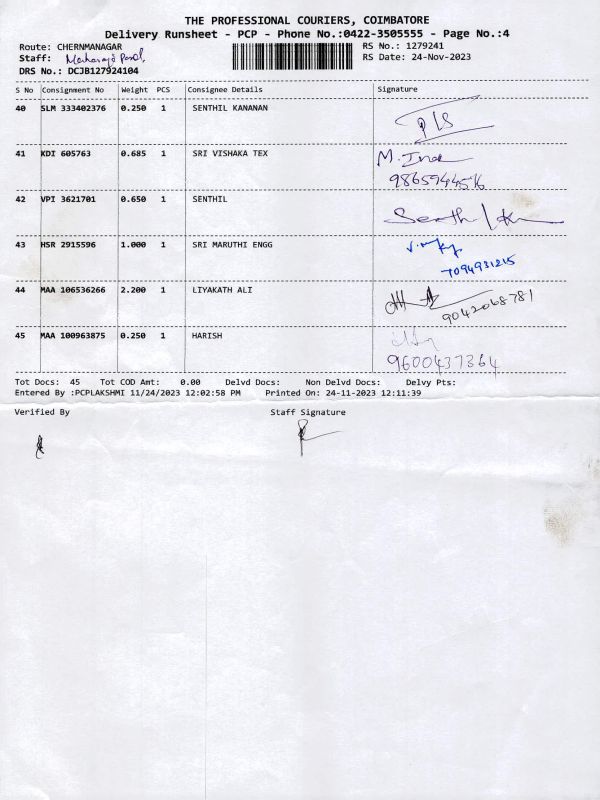 THE PROFESSIONAL COURIERS, COIMBATORE
Delivery Runsheet - PCP - Phone No.:0422-3505555 - Page No.:4
Route: CHERNMANAGAR
RS No.: 1279241
Staff:
RS Date: 24-Nov-2023
DRS No.: DCJB127924104
S No Consignment No Weight PCS Consignee Details Signature
40 SLM 333402376 0.250 1 SENTHIL KANANAN
41 KDI 605763 0.685 1 SRI VISHAKA TEX
42 VPI 3621701 0.650 1 SENTHIL
43 HSR 2915596 1.000 1 SRI MARUTHI ENGG
7094931215
44 MAA 106536266 2.200 1 LIYAKATH ALI
9042068781
45 MAA 100963875 0.250 1 HARISH
9600437364
Tot Docs: 45 Tot COD Amt: 0.00 Delvd Docs: Non Delvd Docs: Delvy Pts:
Entered By :PCPLAKSHMI 11/24/2023 12:02:58 PM Printed On: 24-11-2023 12:11:39
Verified By Staff Signature